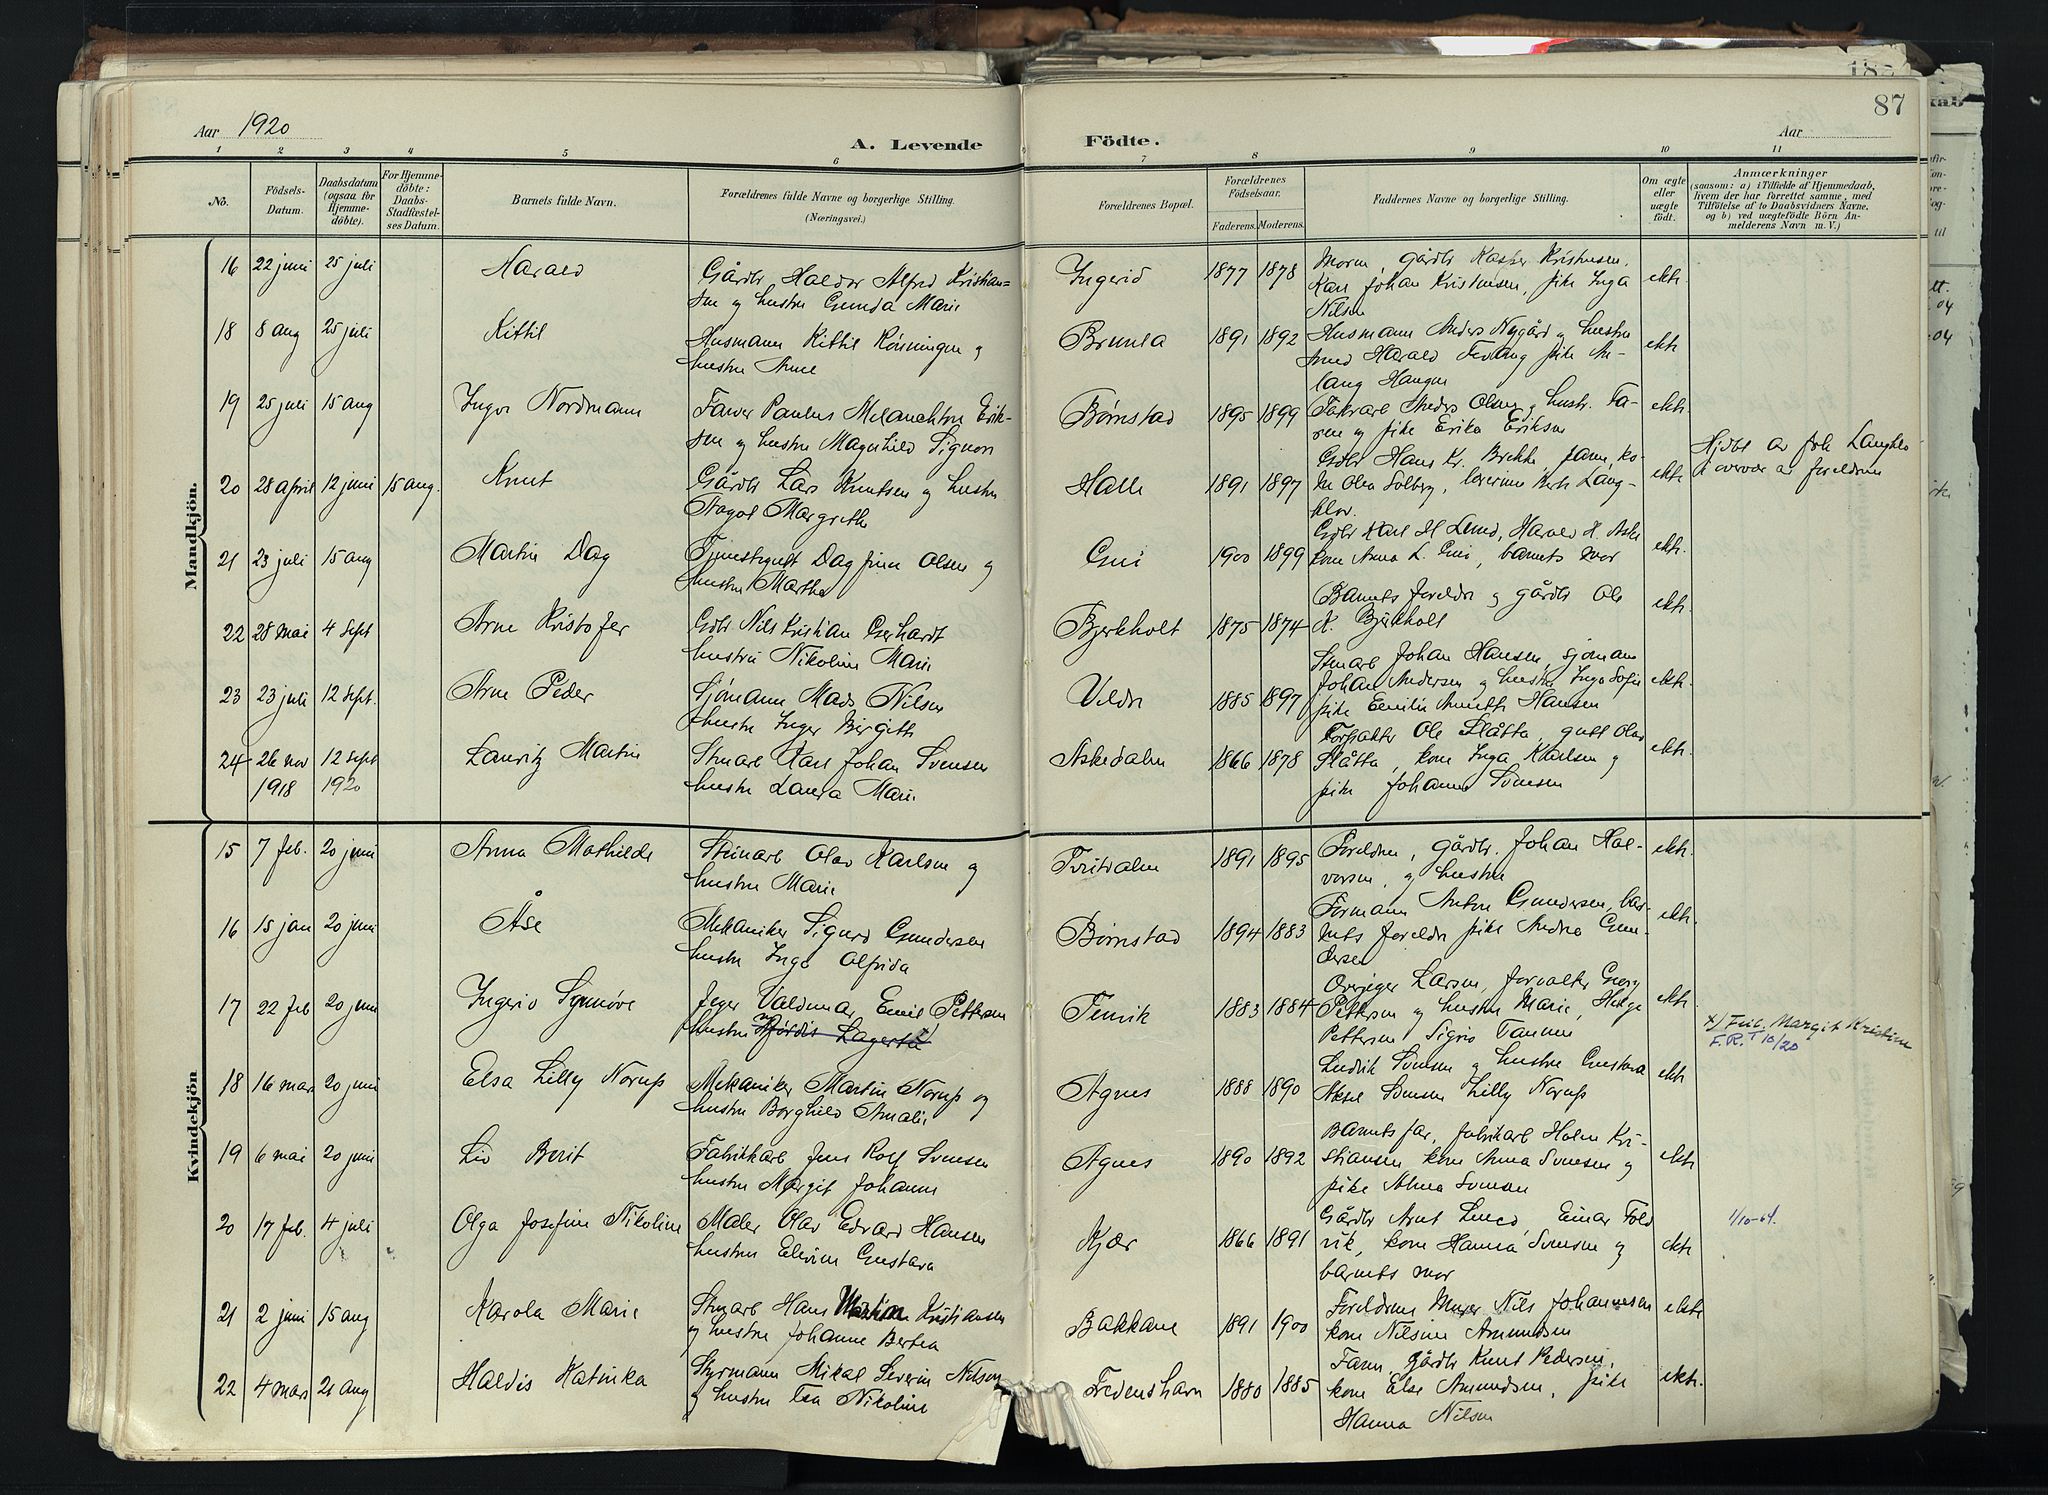 182
87
Aar 1920
A. Levende Födte.
Aar
1 2 3 4 5 6 7 8 9 10 11
No.
Födsels-Datum.
Daabsdatum (ogsaa for Hjemme-döbte).
For Hjemme-döbte: Daabs-Stadfæstel-ses Datum.
Barnets fulde Navn.
Forældrenes fulde Navne og borgerlige Stilling. (Næringsvei.)
Forældrenes Bopæl.
Forældrenes Födselsaar.
Faderens. Moderens.
Faddernes Navne og borgerlige Stilling.
Om ægte eller uægte födt.
Anmærkninger
(saasom: a) i Tilfælde af Hjemmedaab,
hvem der har forrettet samme, med
Tilföielse af to Daabsvidners Navne,
og b) ved uægtefödte Börn An-
melderens Navn m. V.)
Mandkjön.
16 22 juni 25 juli Harald
Gårdbr Haldor Alfred Kristian=
sen og hustru Gunda Marie
Ingerid 1877 1878
Moren, gårdb Kasper Kristensen,
Karl Johan Kristensen, pike Inga
Nilsen
ekte
18 8 aug 25 juli Kittil
Husmann Kittil Rönningen og
hustru Anne
Brunla 1891 1892
Husmann Anders Nygård og hustru
Harald
Haugen
ekte
19 25 juli 15 aug Ingvr Nordmann
Farver Paulus Melanchton Erik-
sen og hustru Magnhild Signora
Børnstad 1895 1899
Fabrarb Anders Olsen og hustr. Fa-
ren og pike Erika Eriksen
ekte
20 28 april 12 juni 15 aug. Knut
Gårdbr Lars Knutsen og hustru
Margrethe
Halle 1891 1897
Gdbr Hans Kr. Brekke, faren, ko-
ne Olea Solberg, lærerinne Berte Lang-
klov.
ekte
Hjdbt av frk Langklo
i overvær av foreldrene
21 23 juli 15 aug Martin Dag
Tjenestgut Dagfinn Olsen og
hustru Marthe
Gui 1900 1899
Gdbr Karl H Lund, Harald H. Aske
kone Anna L. Gui, barnets mor
ekte.
22 28 mai 4 sept Arne Kristofer
Gdbr Nils Kristian Gerhardt
hustru Nikoline Marie
Bjerkholt 1875 1874
Barnets foreldre og gårdb Ole
K. Bjerkholt
ekte
23 23 juli 12 sept. Arne Peder
Sjömann Mads Nilsen
hustru Inger Birgitte
Veldre 1885 1897
Stenarb Johan Hansen, sjömann
Johan Andersen og hustru Inga Sofie
pike Emilie Annette Hansen
ekte.
24 26 nov 1918 12 sept 1920 Lauritz Martin
Stenarb Karl Johan Svensen
hustru Laura Marie
Askedalen 1866 1878
Forpakter Ole Slåtta, gutt Olav
Slåtta, kone Inga Karlsen og
pike Johanne Svensen
ekte.
Kvindekjön
15 7 feb. 20 juni Anna Mathilde
Stenarb Olav Karlsen og
hustru Marie
Tveitdalen 1891 1895
Foreldrene, gårdbr. Johan Hal-
vorsen, og hustru
ekte.
16 15 jan 20 juni Åse
Mekaniker Sigurd Gundersen
hustru Inga Alfrida
Børnstad 1894 1883
Formann Anton Gundersen, bar-
nets foreldre pike Andrea Gun-
dersen
ekte.
17 22 feb 20 juni Ingerid Synnöve
Jeger Valdemar Emil Pettersen
hustru Hjördis Lagerta x)
Fenrik 1883 1884
Overjeger Larsen, forvalter Georg
Pettersen og hustru Marie, Helge
Pettersen Sigrid Tannen
ekte.
x) Fru. Margit Kristine
F.R. T 10/20
18 16 mars 20 juni Elsa Lilly Norup
Mekaniker Martin Norup og
hustru Borghild Amalie
Agnes 1888 1890
Ludvik Svensen og hustru Gustava
Aksel Svensen Lilly Norup
ekte
19 6 mai 20 juni Liv Berit
Fabrikkarb Jens Rolf Svensen
hustru Margit Johanne
Agnes 1890 1892
Barnets far, fabrikarb Holm Kri-
stiansen kone Anna Svensen og
pike Alma Svensen
ekte
20 17 feb. 4 juli Olga Josefine Nikoline
Maler Olav Edvard Hansen
hustru Elvine Gustava
Kjær 1866 1891
Gårdbr Arnt Lund, Einar Fold
vik, kone Hanna Svensen og
barnets mor
ekte
1/10-64.
21 2 juni 15 aug Karola Marie
Stenarb Hans Martin Kristiansen
og hustru Johanne Bertea
Bakkane 1891 1900
Foreldrene Murer Nils Johannesen
kone Nilsine Amundsen
ekte
22 4 mars 21 aug Haldis Katinka
Styrmann Mikal Severin Nilsen
og hustru Tea Nikoline
Fredenshavn 1880 1885
Faren, Gårdbr Knut Pedersen,
kone Else Amundsen, pike
Hanna Nilsen
ekte.